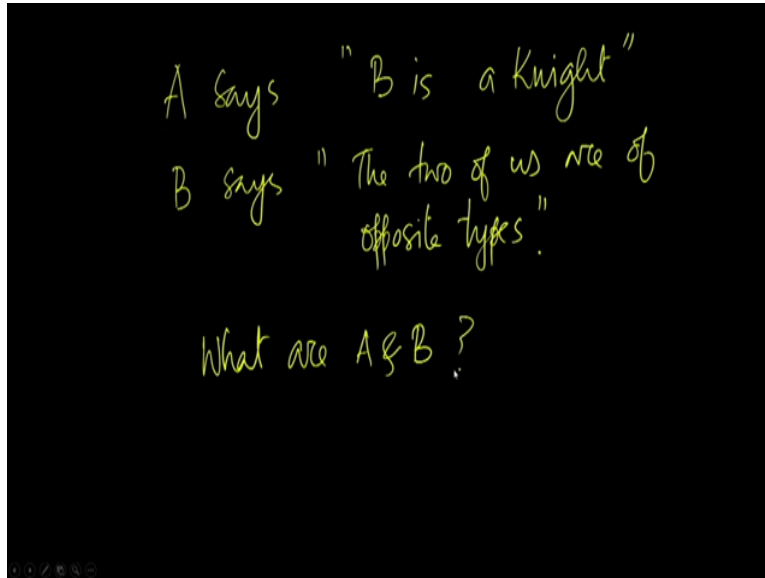 A says "B is a Knight"
B says "The two of us are of
opposite types".
What are A & B ?